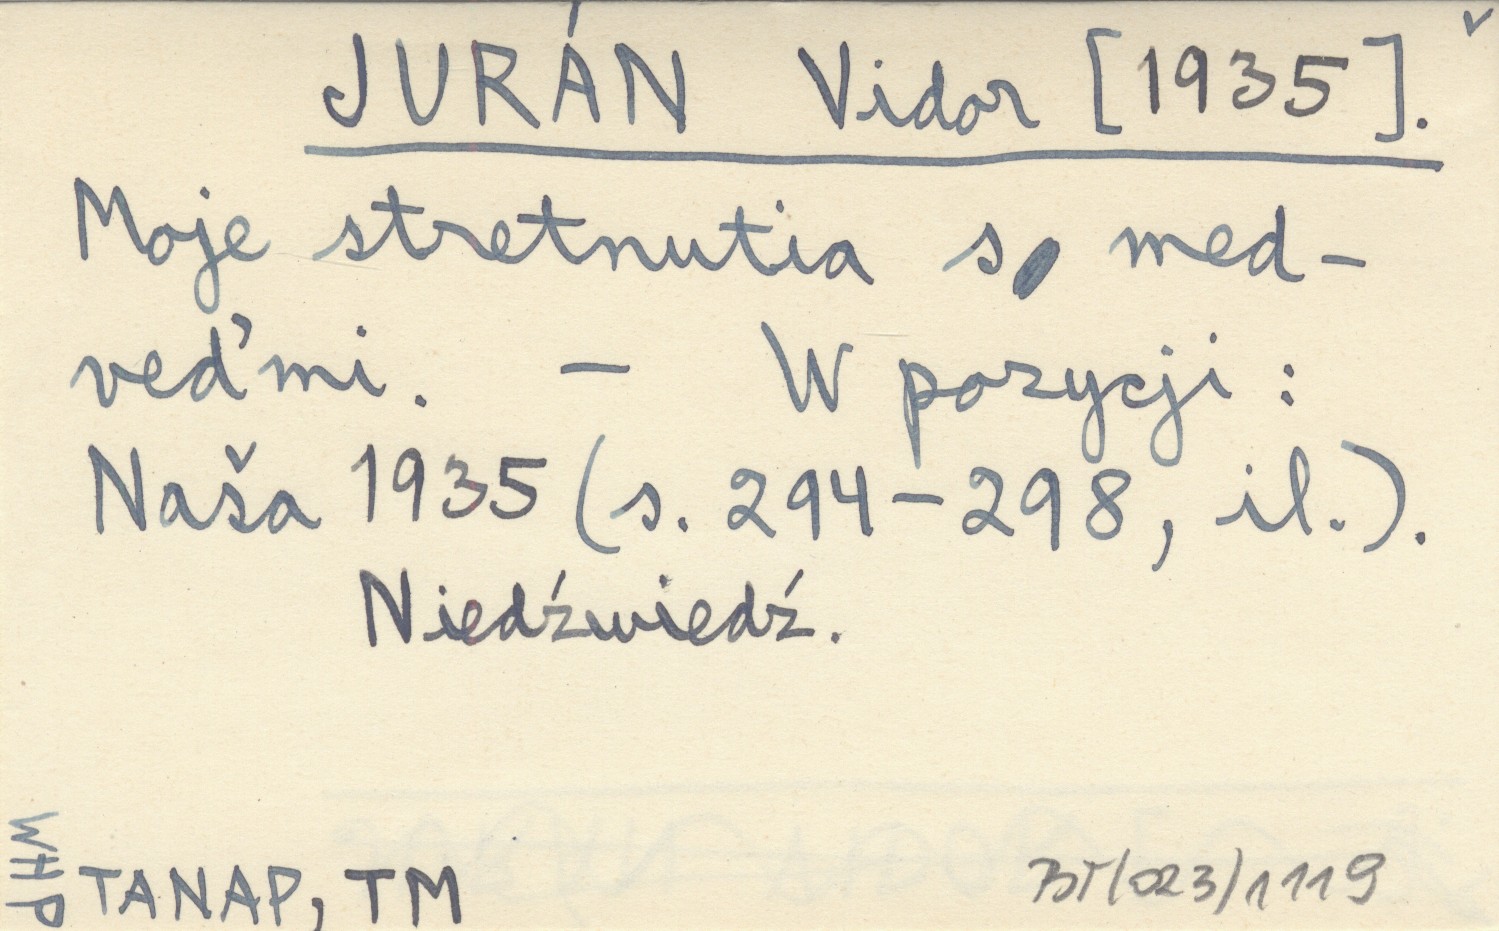 JURÁN Vidor [1935].
Moje stretnutia s med-
veďmi. – W pozycji:
Naša 1935 (s. 294–298, il.).
Niedźwiedź.
WHP
TANAP, TM
BT/023/1119